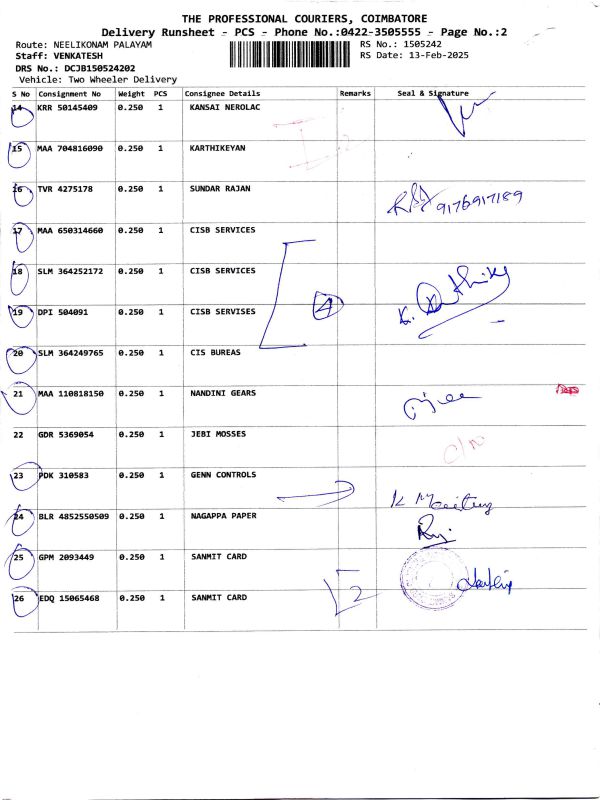 THE PROFESSIONAL COURIERS, COIMBATORE
Delivery Runsheet - PCS - Phone No.:0422-3505555 - Page No.:2
Route: NEELIKONAM PALAYAM RS No.: 1505242
Staff: VENKATESH RS Date: 13-Feb-2025
DRS No.: DCJB150524202
Vehicle: Two Wheeler Delivery
S No Consignment No Weight PCS Consignee Details Remarks Seal & Signature
14 KRR 50145409 0.250 1 KANSAI NEROLAC
15 MAA 704816090 0.250 1 KARTHIKEYAN
16 TVR 4275178 0.250 1 SUNDAR RAJAN 9176917189
17 MAA 650314660 0.250 1 CISB SERVICES
18 SLM 364252172 0.250 1 CISB SERVICES
19 DPI 504091 0.250 1 CISB SERVISES 4
20 SLM 364249765 0.250 1 CIS BUREAS
21 MAA 110818150 0.250 1 NANDINI GEARS
22 GDR 5369054 0.250 1 JEBI MOSSES
23 PDK 310583 0.250 1 GENN CONTROLS
24 BLR 4852550509 0.250 1 NAGAPPA PAPER
25 GPM 2093449 0.250 1 SANMIT CARD
26 EDQ 15065468 0.250 1 SANMIT CARD 2